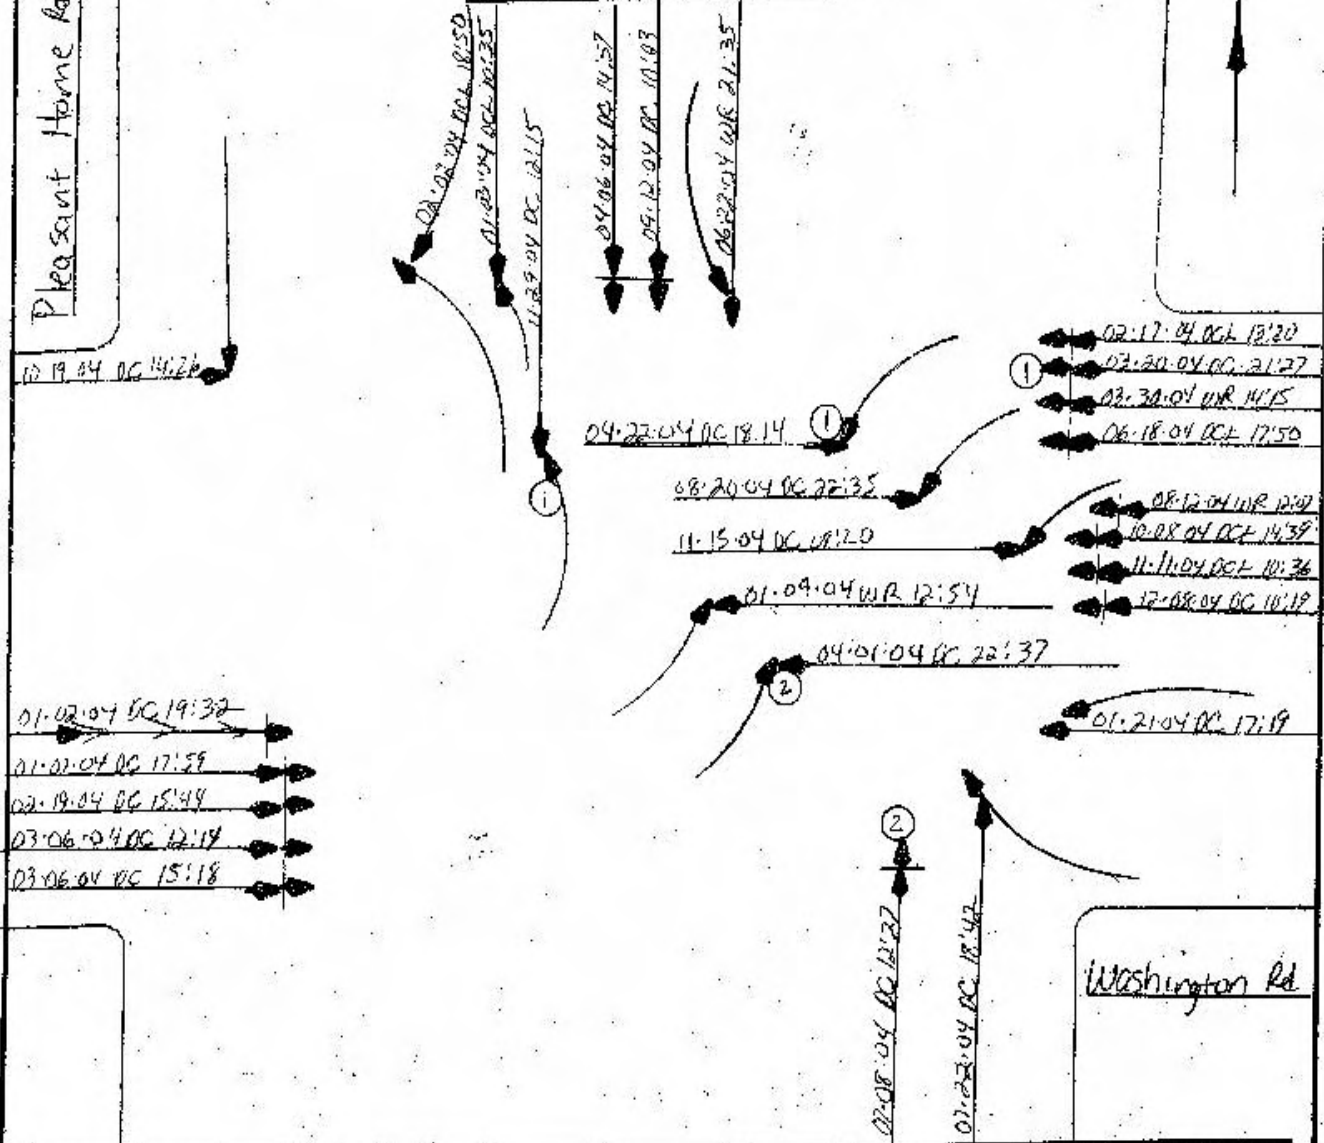 Pleasant Home Ro
02·02·04 DCL 18:50
01·03·04 DCL 10:35
11·29·04 DC 12:15
04·06·04 DC 14:57
09·12·04 DC
06·22·04 WR 21:35
10 19 04 DC 14:26
02·17·04 DCL 13:20
1
03·20·04 DC 21:27
03·30·04 WR 14:15
06·18·04 DCL 17:50
04·22·04 DC 18:14
1
08·20·04 DC 22:35
1
11·15·04 DC
08·12·04 WR
10·08·04 DCL 14:39
11·11·04 DCL 10:36
12·08·04 DC 10:19
01·09·04 WR 12:54
04·01·04 DC 22:37
2
01·02·04 DC 19:32
01·21·04 DC 17:19
DC 17:59
02·19·04 DC 15:44
03·06·04 DC 12:14
03·06·04 DC 15:18
2
DC 12:27
07·22·04 DC 18:42
Washington Rd